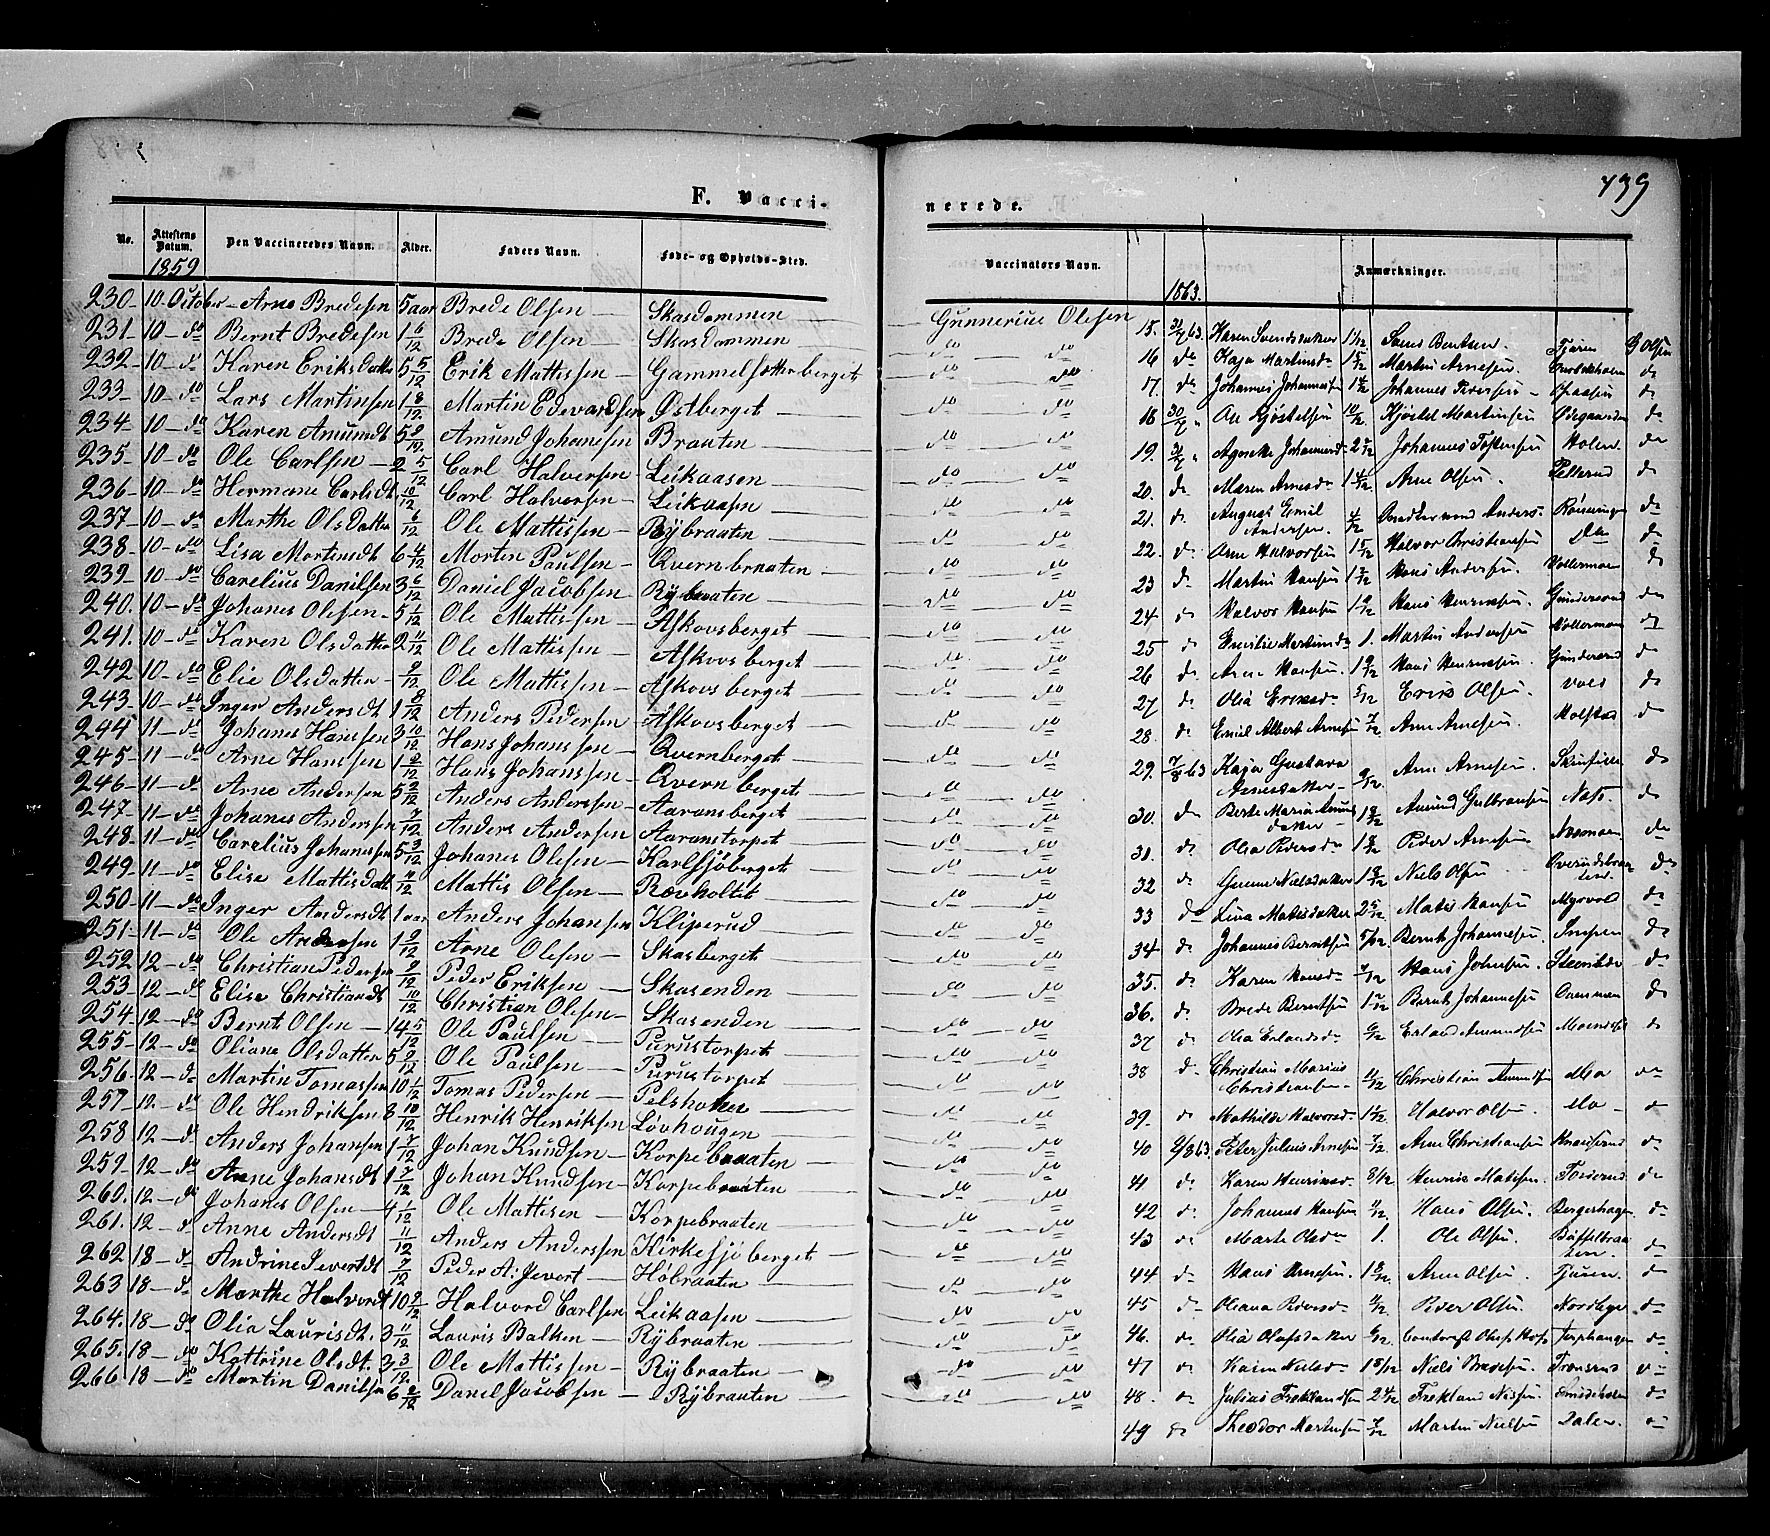 439
F. Vacci-
nerede.
No. Attestens Datum. Den Vaccineredes Navn. Alder. Faders Navn. Føde- og Opholds-Sted.
Vaccinators Navn. Anmærkninger.
1859
1863.
230 - 10 October - Arne Bredesen 5 aar Brede Olsen Skasdammen Gunnerius Olesen
231 - 10 - do Bernt Bredesen 1 6/12 Brede Olsen Skasdammen do do
232 - 10 - do Karen Eriksdatter 5 5/12 Erik Mattissen Gammelsætterberget do do
233 - 10 - do Lars Martinsen 1 8/12 Martin Edevardsen Østberget do do
234 - 10 - do Karen Amundt 5 9/12 Amund Johanesen Braaten do do
235 - 10 - do Ole Carlsen 2 5/12 Carl Halversen Leikaasen do do
236 - 10 - do Hermane Carlsdt 10/12 Carl Halversen Leikaasen do do
237 - 10 - do Marthe Olsdatter 6/12 Ole Mattissen Rybraaten do do
238 - 10 - do Lisa Mortensdt 6 4/12 Morten Paulsen Qvernbraaten do do
239 - 10 - do Carelius Danilsen 3 6/12 Daniel Jacobsen Rybraaten do do
240. 10 - do Johanes Olesen 5 1/12 Ole Mattissen Afkovsberget do do
241. 10 - do Karen Olsdatter 2 11/12 Ole Mattissen Afkovsberget do do
242 10 - do Elie Olsdatter 9/12 Ole Mattissen Afkovsberget do do
243. 10 - do Inger Andersdt 1 8/12 Anders Pedersen Afkovsberget do do
244 11 - do Johanes Hanssen 3 10/12 Hans Johanssen Qvernberget do do
245 - 11 - do Arne Hanssen 1 9/12 Hans Johanssen Qvernberget do do
246 - 11 - do Arne Andersen 5 2/12 Anders Anderssen Aaransberget do do
247 - 11 - do Johanes Anderssen 7/12 Anders Andersen Aaranstorpet do do
248 - 11 - do Carelius Johanessen 5 3/12 Johanes Olesen Karlsjøberget do do
249 - 11 - do Elise Mattisdatt 11/12 Mattis Olsen Rævholtet do do
250 - 11 - do Inger Andersdt 1 aar Anders Johansen Kliperud do do
251 - 11 - do Ole Andersen 1 9/12 Arne Olesen Skasberget do do
252 12 - do Christian Pedersen 9/12 Peder Eriksen Skasenden do do
253 - 12 - do Elise Christiandt 10/12 Christian Olesen Skasenden do do
254 - 12 - do Bernt Olsen 14 5/12 Ole Paulsen Purustorpet do do
255 - 12 - do Oliane Olsdatter 5 9/12 Ole Paulsen Purustorpet do do
256. 12 - do Martin Tomassen 10 1/12 Tomas Pedersen do do
257 - 12. - do Ole Hendriksen 8 10/12 Henrik Henriksen Løvhougen do do
258 12 - do Anders Johansen 1 7/12 Johan Knudsen Korpebraaten do do
259. - 12 - do Anne Johansdt 1 7/12 Johan Knudsen Korpebraaten do do
260. 12 - do Johanes Olsen 4 1/12 Ole Mattisen Korpebraaten do do
261. 12 - do Anne Andersdt 11/12 Anders Anderssen Kirkesjøberget do do
262 18 - do Andrine Ivertdt 7/12 Peder A: Jevert Høbraaten do do
263 18 - do Marthe Halvordt 10 9/12 Halvord Carlsen Leikaasen do do
264. 18 - do Olia Laurisdt. 3 11/12 Lauris Balken Rybraaten do do
265. 18 - do Kattrine Olsdt. 3 3/12 Ole Mattissen Rybraaten do do
266 18 - do Martin Danilsen 6 2/12 Danel Jacobsen Rybraaten do do
15. 31/7 63 Karen Svendsdatter 1 1/12 Bentsen. Tjuren G Olsen
16 do Kaja Martinsd. 1 5/12 Martin Arnesen do
17. do Johannes Johannesen Johannes Pedersen do
18 30/7 Ole Kjøstelsen 10/12 Kjøstel Martinsen Ødegaarden do
19. 31/7 Agnethe Johannesd. Johannes Holen do
20. do Maren Arnesd. Arne Olsen. do
21. do August Emil Andersen. 4/12 Anders Rønningen do
22. do Arne Halvorsen 1 5/12 Halvor Christiansen do do
23 do Martin Hansen Hans Andersen. Vollermoen do
24 do Halvor Hansen Hans Henriksen. Gundersrud do
25 do Emilie Martinsd. 1. Martin Andersen Vollermoen do
26 do Arne Hansen 1 9/12 Hans Henriksen. Gundersrud do
27 do Olia Eriksd. Erik Olsen. Vold do
28. do Emil Albert Arnesen 7/12 Arne Arnesen. Molstad do
29. 7/8 63 Kaja Gustava Arnesdatter 9/12 Arne Arnesen. do
30. do Berte Maria Amundsdatter Amund Gulbransen Næss. do
31. do Olia Pedersd. Peder Arnesen Næsmoen do
32 do Gunne Nielsdatter Niels Olsen do
33 do Lina Matisdatter 2 5/12 Matis Hansen Myrvold do
34 do Johannes Berntsen 5/12 Bernt Johannesen do
35. do Karen Hansd. Hans Johnsen. do
36. do Brede Berntsen Bernt Johannesen do
37 do Olia Erlandsd. Erland Amundsen do
38 do Christian Marius Christiansen 11/12 Christian Amundsen Mo do
39. do Mathilde Halvorsd. Halvor Olsen. Mo - do
40 9/8 63 Peter Julius Arnesen 7/12 Arne Christiansen do
41 do Karen Henriksd. 8/12 Henrik Matisen. do
42 do Johannes Hansen Hans Olsen. Bergerhagen do
43 do Marte Olsd. 1. Ole Olsen. do
44 do Hans Arnesen. 1 8/12 Arne Olsen. Tjuren. do
45 do Oliana Pedersd. Peder Olsen. do
46. do Olia Olafsdatter do
47 do Karen Nielsd. 1 8/12 Niels Bredesen. do
48. do Julius 2 4/12 do
49 do Theodor Martinsen 7/12 Martin Nielsen Dalen. do